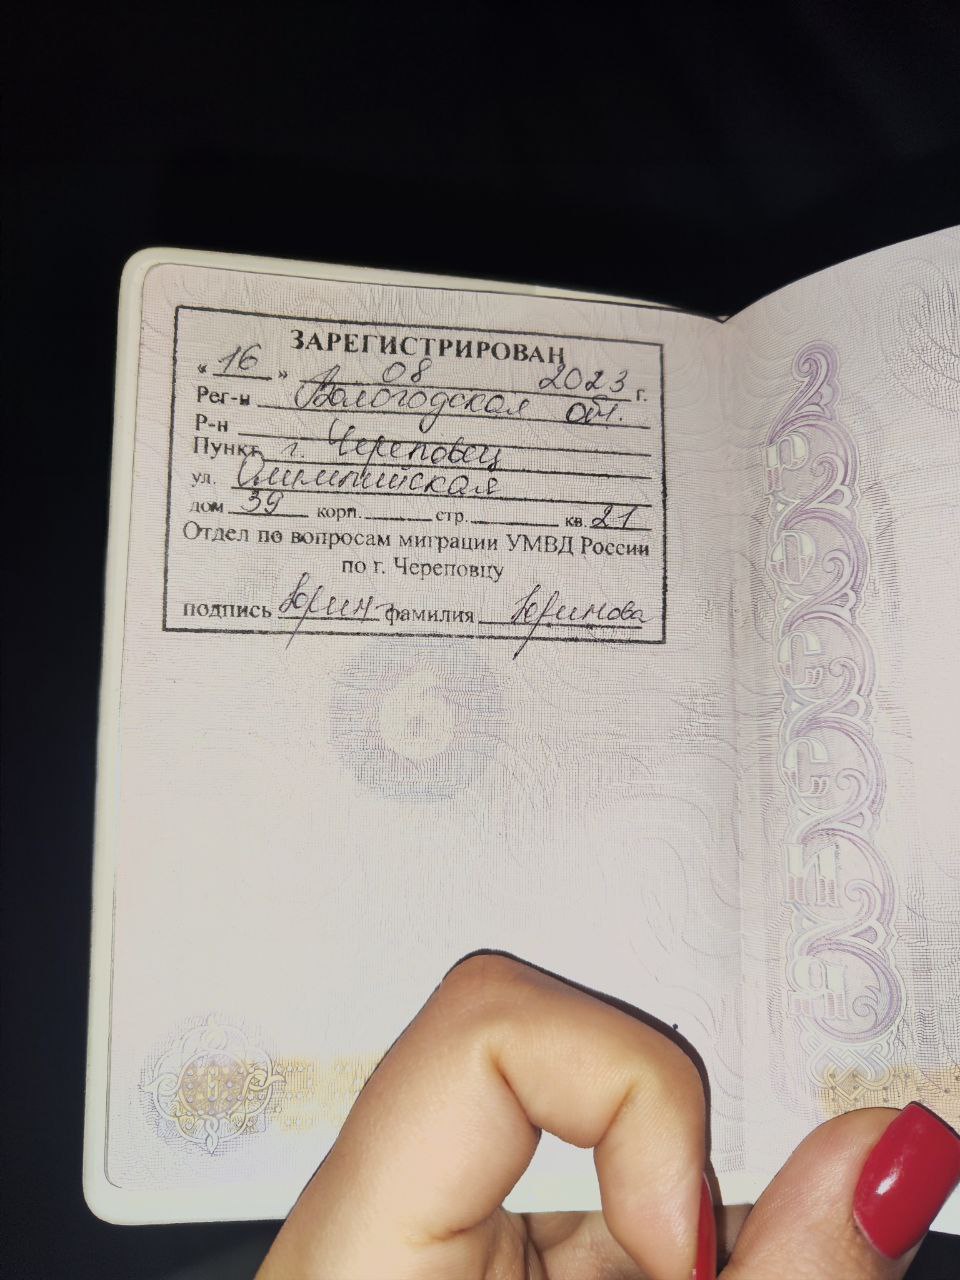 ЗАРЕГИСТРИРОВАН
« 16 » 08 2023 г.
Рег-н Вологодская обл.
Р-н
Пункт г. Череповец
ул. Олимпийская
дом 39 корп. стр. кв. 21
Отдел по вопросам миграции УМВД России
по г. Череповцу
подпись Юрин фамилия Юринова
РОССИЯ